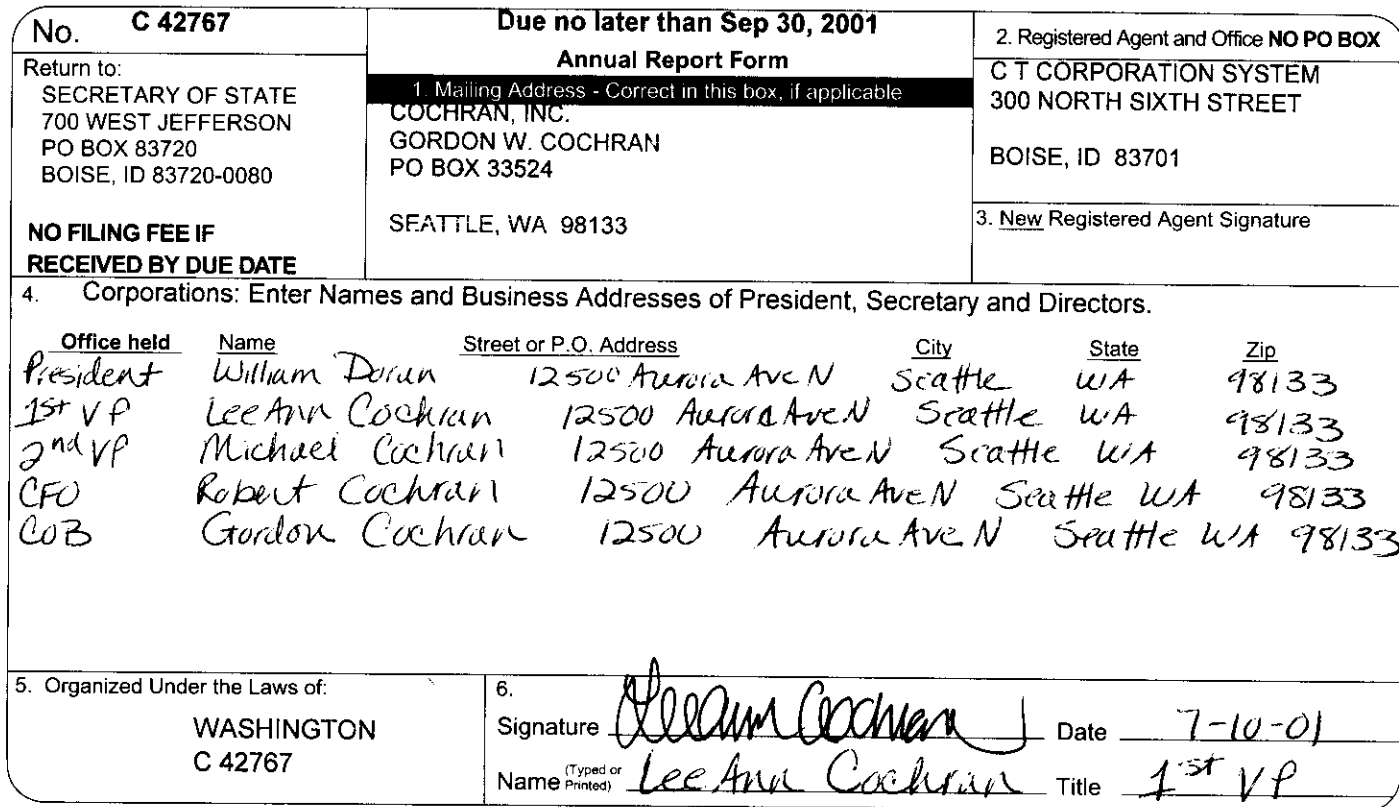 No. C 42767
Return to:
SECRETARY OF STATE
700 WEST JEFFERSON
PO BOX 83720
BOISE, ID 83720-0080
NO FILING FEE IF
RECEIVED BY DUE DATE
Due no later than Sep 30, 2001
Annual Report Form
1. Mailing Address - Correct in this box, if applicable
COCHRAN, INC.
GORDON W. COCHRAN
PO BOX 33524
SEATTLE, WA 98133
2. Registered Agent and Office NO PO BOX
C T CORPORATION SYSTEM
300 NORTH SIXTH STREET
BOISE, ID 83701
3. New Registered Agent Signature
4. Corporations: Enter Names and Business Addresses of President, Secretary and Directors.
Office held Name Street or P.O. Address City State Zip
President William Doran 12500 Aurora Ave N Seattle WA 98133
1st VP LeeAnn Cochran 12500 Aurora Ave N Seattle WA 98133
2nd VP Michael Cochran 12500 Aurora Ave N Seattle WA 98133
CFO Robert Cochran 12500 Aurora Ave N Seattle WA 98133
COB Gordon Cochran 12500 Aurora Ave N Seattle WA 98133
5. Organized Under the Laws of:
WASHINGTON
C 42767
6.
Signature LeeAnn Cochran Date 7-10-01
Name (Typed or Printed) LeeAnn Cochran Title 1st VP